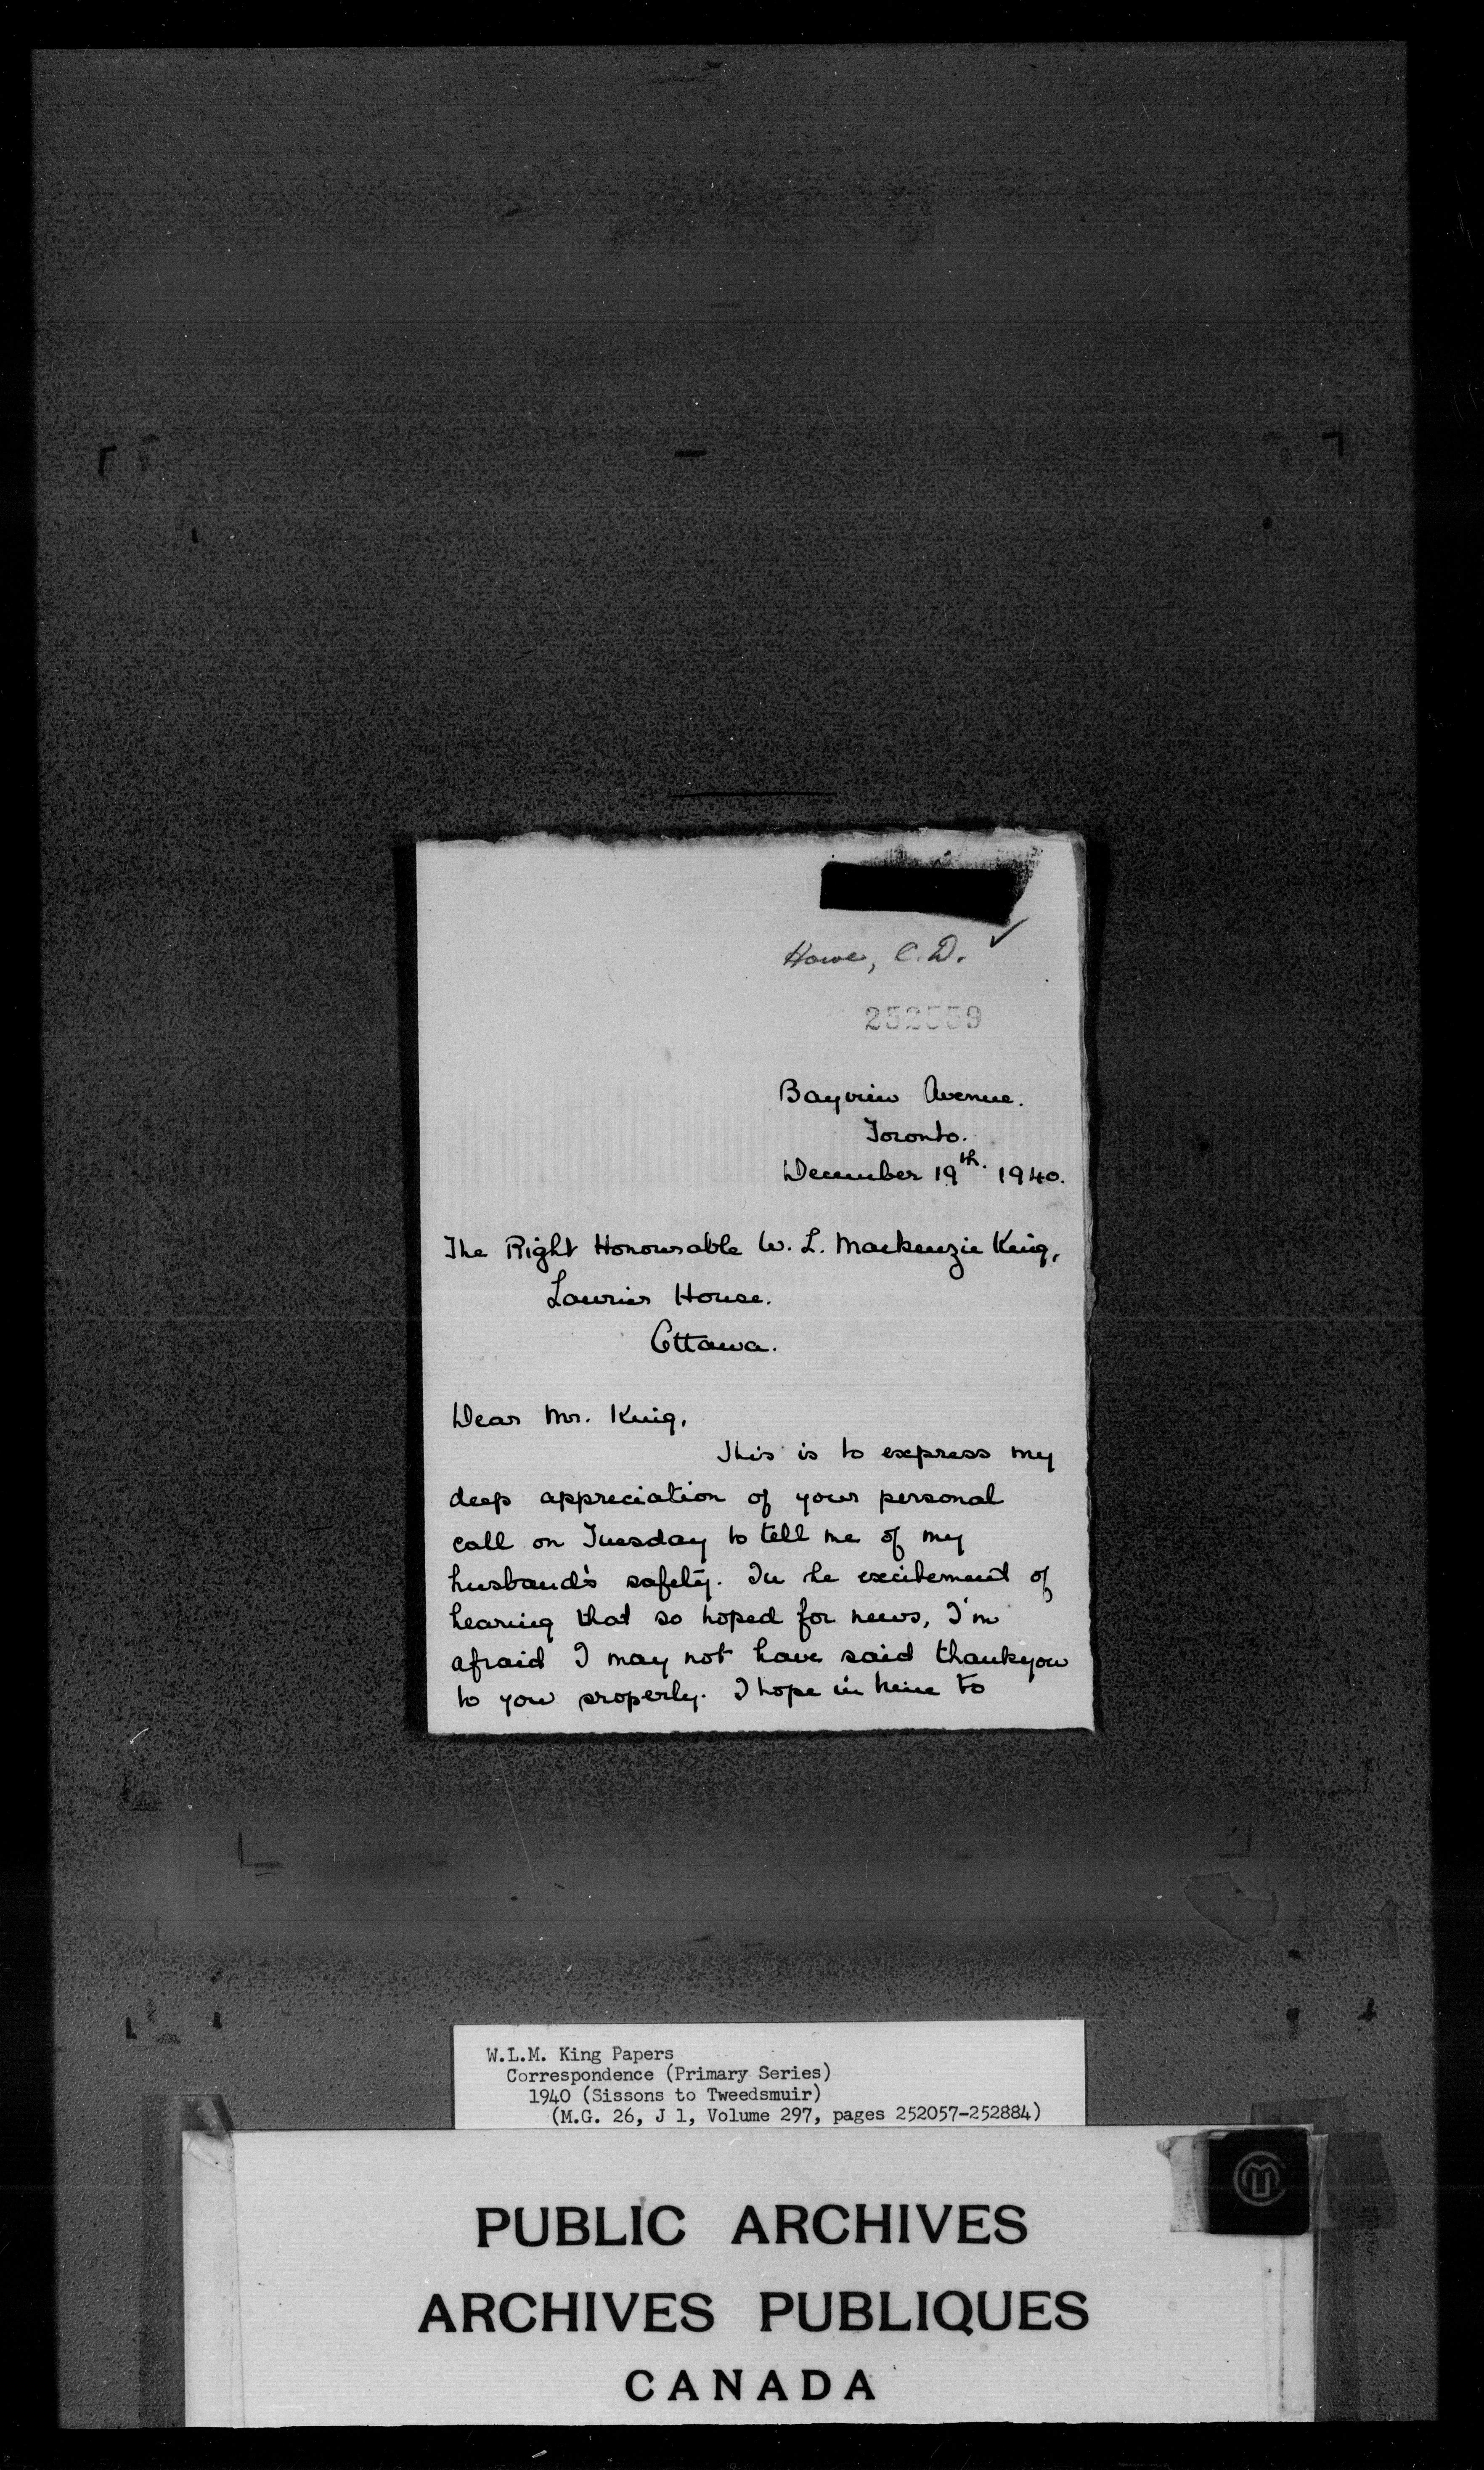 Howe, C.D. ✓
252559
Bayview Avenue.
Toronto.
December 19th. 1940.
The Right Honourable W. L. Mackenzie King,
Laurier House.
Ottawa.
Dear Mr. King,
This is to express my
deep appreciation of your personal
call on Tuesday to tell me of my
husband's safety. In the excitement of
hearing that so hoped for news, I'm
afraid I may not have said thankyou
to you properly. I hope in time to
W.L.M. King Papers
Correspondence (Primary Series)
1940 (Sissons to Tweedsmuir)
(M.G. 26, J 1, Volume 297, pages 252057-252884)
PUBLIC ARCHIVES
ARCHIVES PUBLIQUES
CANADA